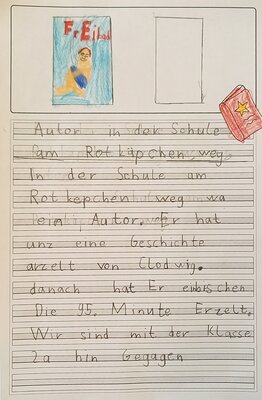 FrEibad
Autor in der Schule
am Rotkäpchenweg
In der Schule am
Rotkepchenweg wa
ein Autor. Er hat
unz eine Geschichte
arzelt von Clodwig.
danach hat Er
Die 95. Minute Erzelt.
Wir sind mit der Klasse
2a hin Gegagen